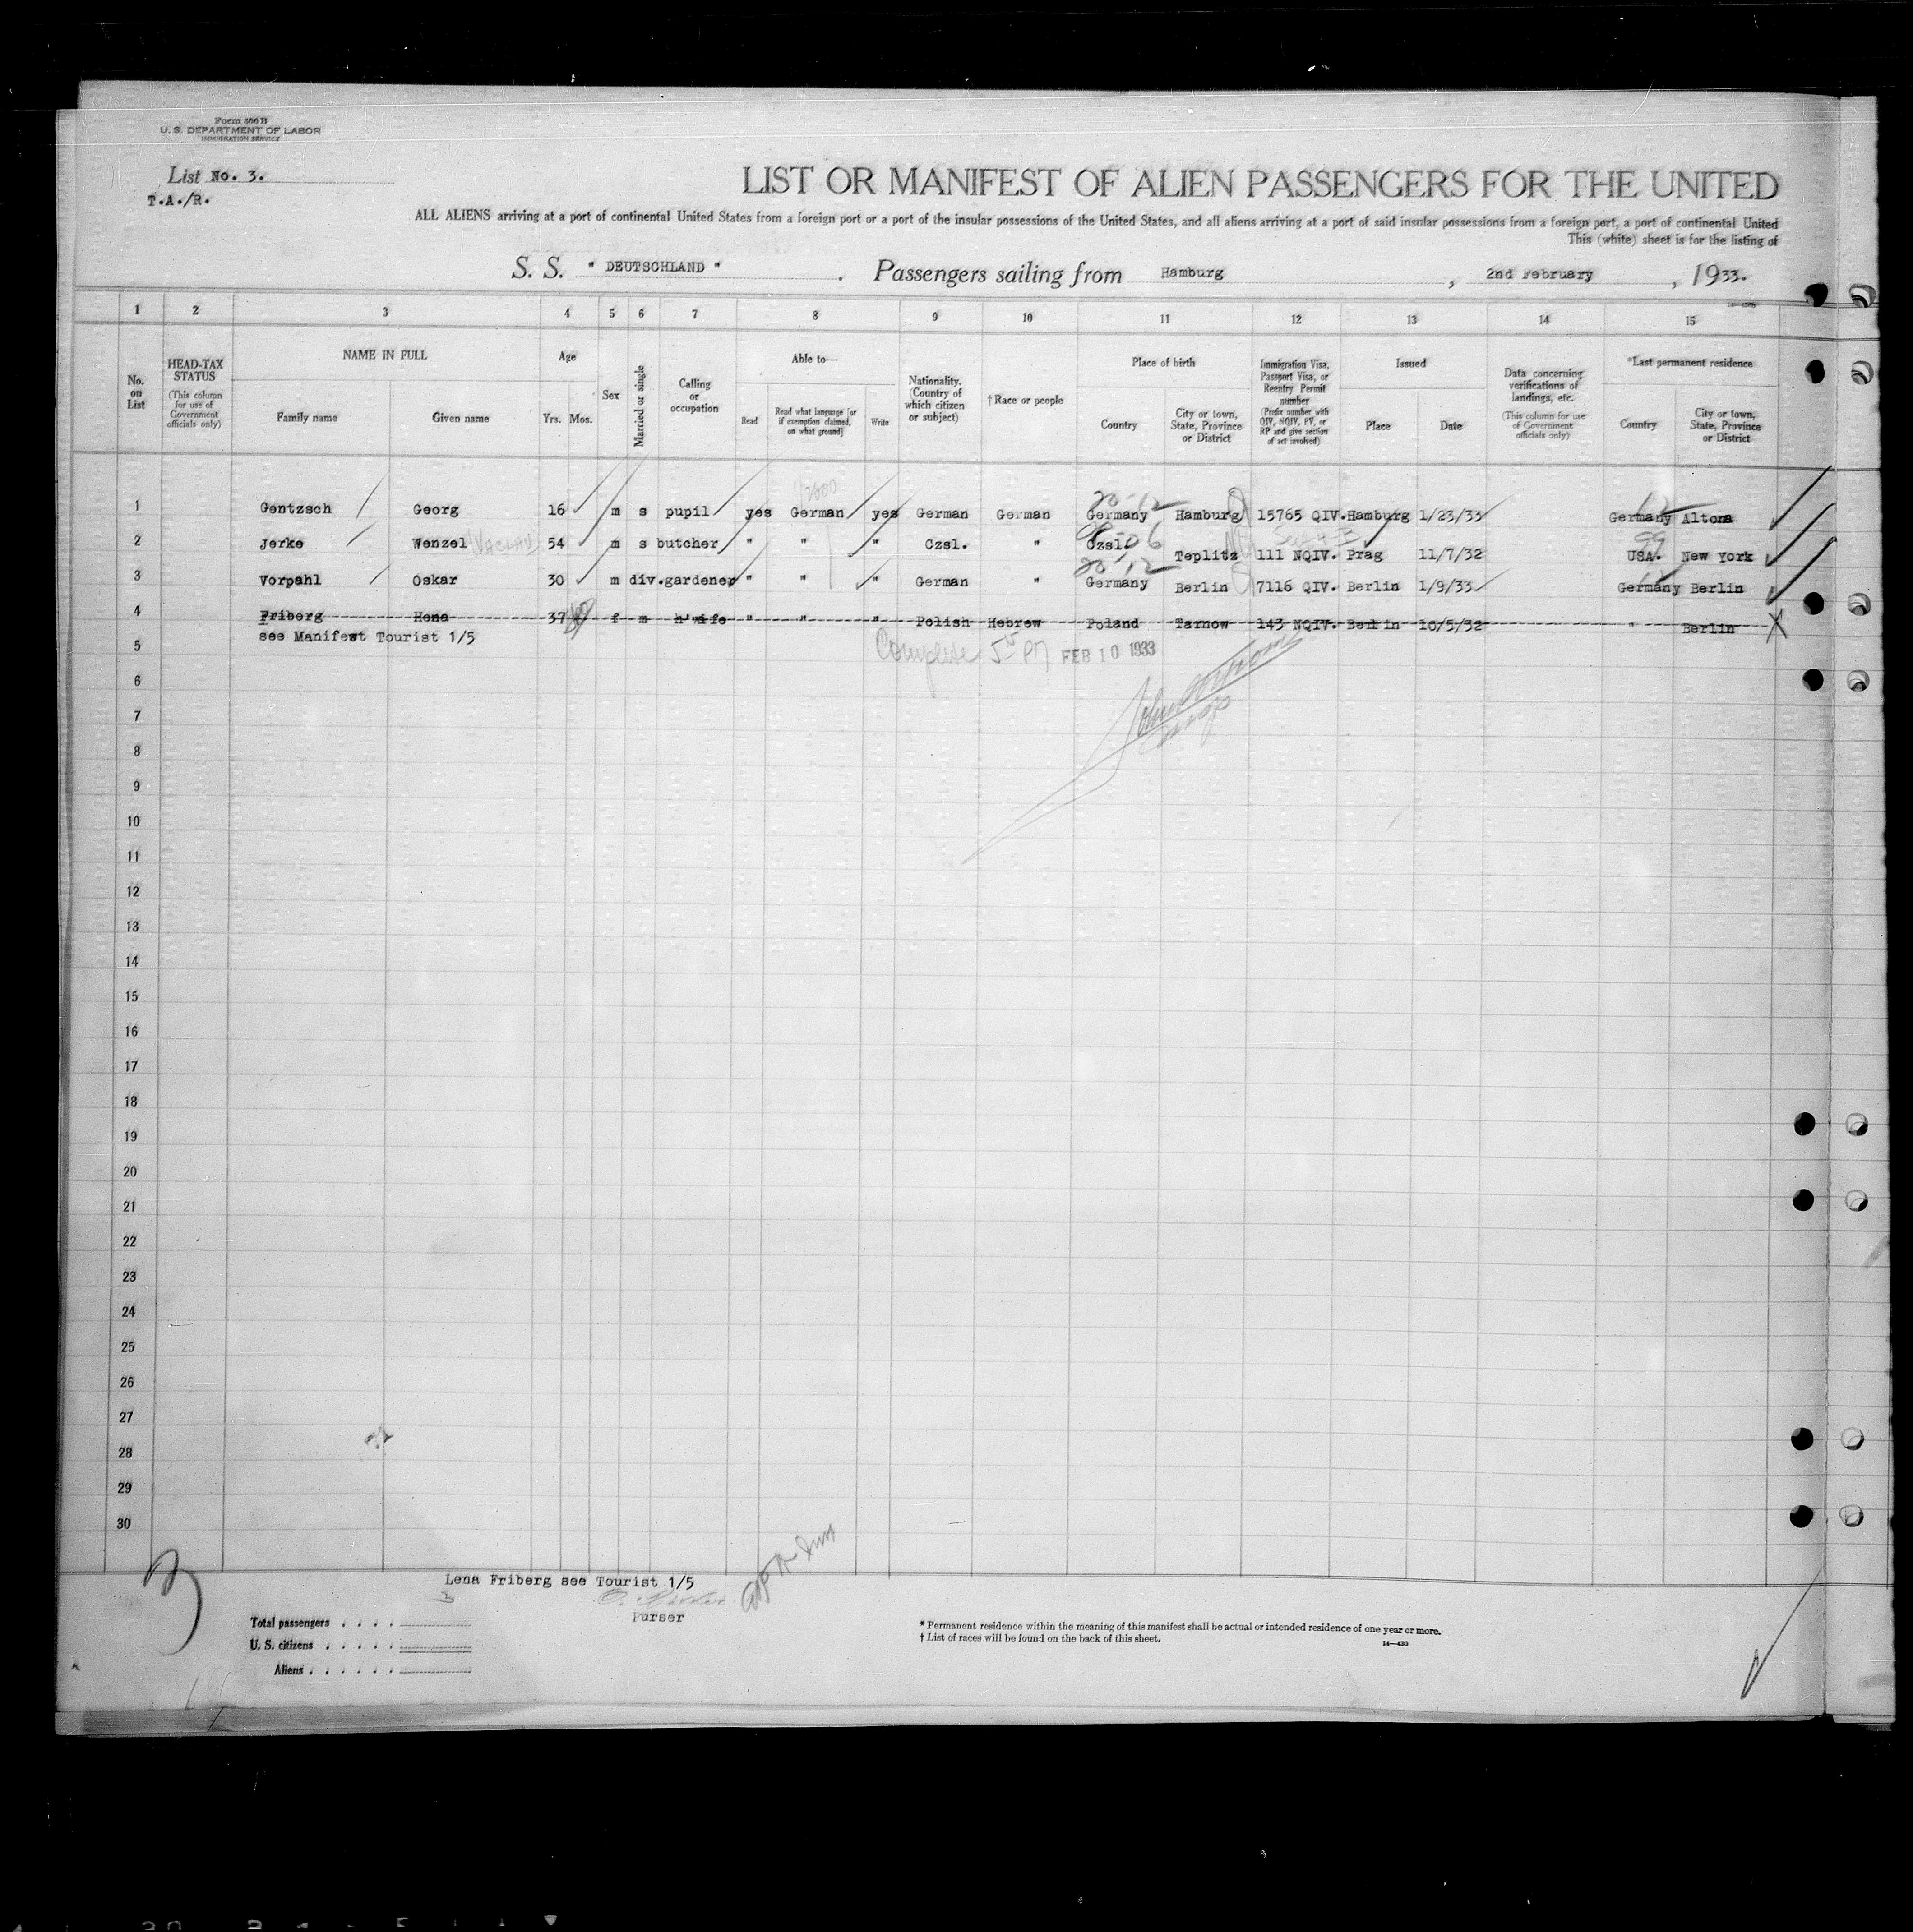 Form 500 B
U. S. DEPARTMENT OF LABOR
IMMIGRATION SERVICE
List No. 3.
T.A./R.
LIST OR MANIFEST OF ALIEN PASSENGERS FOR THE UNITED
ALL ALIENS arriving at a port of continental United States from a foreign port or a port of the insular possessions of the United States, and all aliens arriving at a port of said insular possessions from a foreign port, a port of continental United
This (white) sheet is for the listing of
S. S. " DEUTSCHLAND " . Passengers sailing from Hamburg , 2nd February , 1933.
1 2 3 4 5 6 7 8 9 10 11 12 13 14 15
No. on List
HEAD-TAX STATUS (This column for use of Government officials only)
NAME IN FULL
Family name
Given name
Age
Yrs. Mos.
Sex
Married or single
Calling or occupation
Able to—
Read
Read what language [or if exemption claimed, on what ground]
Write
Nationality. (Country of which citizen or subject)
† Race or people
Place of birth
Country
City or town, State, Province or District
Immigration Visa, Passport Visa, or Reentry Permit number (Prefix number with QIV, NQIV, PV, or RP and give section of act involved)
Issued
Place
Date
Data concerning verifications of landings, etc. (This column for use of Government officials only)
*Last permanent residence
Country
City or town, State, Province or District
1 Gentzsch Georg 16 m s pupil yes German yes German German Germany Hamburg 15765 QIV. Hamburg 1/23/33 Germany Altona
2 Jerke Wenzel VACLAV 54 m s butcher " " " Czsl. " Czsl. Teplitz 111 NQIV. Prag 11/7/32 USA. New York
3 Vorpahl Oskar 30 m div. gardener " " " German " Germany Berlin 7116 QIV. Berlin 1/9/33 Germany Berlin
4 Friberg Hena 37 f m h'wife " " " Polish Hebrew Poland Tarnow 143 NQIV. Berlin 10/5/32 " Berlin
see Manifest Tourist 1/5
5
Complete FEB 10 1933
6
7
8
9
10
11
12
13
14
15
16
17
18
19
20
21
22
23
24
25
26
27
28
29
30
Lena Friberg see Tourist 1/5
Purser
Total passengers . . . .
U. S. citizens . . . . .
Aliens . . . . . .
* Permanent residence within the meaning of this manifest shall be actual or intended residence of one year or more.
† List of races will be found on the back of this sheet.
14—430